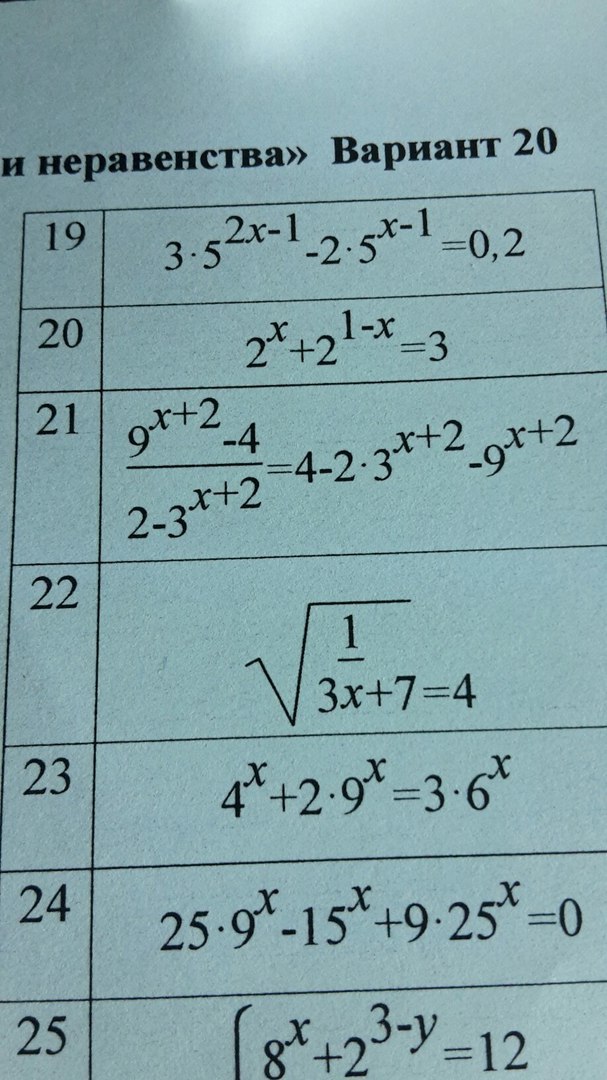 и неравенства» Вариант 20
19 3·5^{2x-1}-2·5^{x-1}=0,2
20 2^x+2^{1-x}=3
21 \frac{9^{x+2}-4}{2-3^{x+2}}=4-2·3^{x+2}-9^{x+2}
22 √ 1
3x+7=4
23 4^x+2·9^x=3·6^x
24 25·9^x-15^x+9·25^x=0
25 { 8^x+2^{3-y}=12